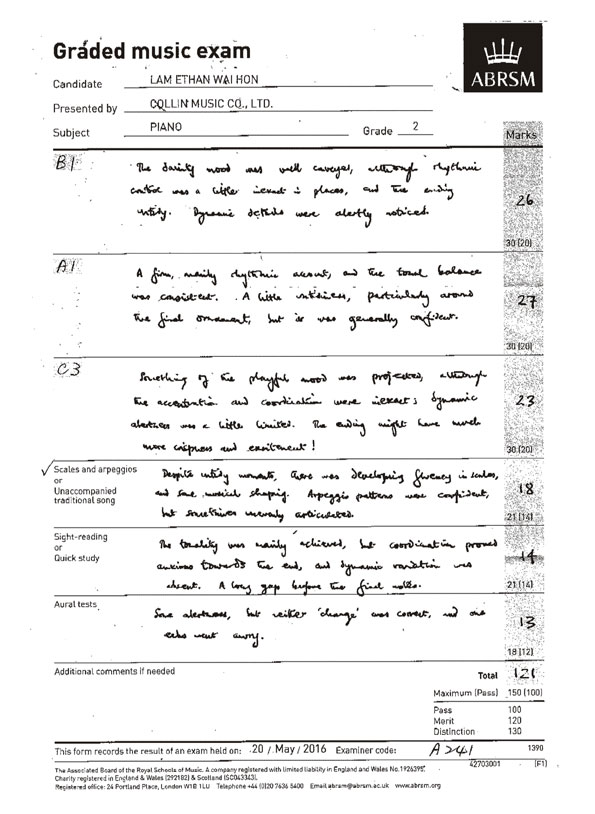 Graded music exam
ABRSM
Candidate LAM ETHAN WAI HON
Presented by COLLIN MUSIC CO., LTD.
Subject PIANO Grade 2
Marks
B1 The dainty mood was well conveyed, although rhythmic
control was a little inexact in places, and the ending
untidy. Dynamic details were alertly noticed.
26
30 (20)
A1 A firm, mainly rhythmic account, and the tonal balance
was consistent. A little untidiness, particularly around
the final ornament, but it was generally confident.
27
30 (20)
C3 Something of the playful mood was projected, although
the accentuation and coordination were inexact; dynamic
alertness was a little limited. The ending might have much
more crispness and excitement!
23
30 (20)
Scales and arpeggios
or
Unaccompanied
traditional song
Despite untidy moments, there was developing fluency in scales,
and some musical shaping. Arpeggio patterns were confident,
but sometimes unevenly articulated.
18
21 (14)
Sight-reading
or
Quick study
The tonality was mainly achieved, but coordination proved
anxious towards the end, and dynamic variation was
absent. A long gap before the final notes.
14
21 (14)
Aural tests
Some alertness, but neither 'change' was correct, and one
echo went awry.
13
18 (12)
Additional comments if needed
Total 121
Maximum (Pass) 150 (100)
Pass 100
Merit 120
Distinction 130
This form records the result of an exam held on: 20 / May / 2016 Examiner code: A241 1390
42703001 (F1)
The Associated Board of the Royal Schools of Music. A company registered with limited liability in England and Wales No.1926395.
Charity registered in England & Wales (292182) & Scotland (SC043343).
Registered office: 24 Portland Place, London W1B 1LU Telephone +44 (0)20 7636 5400 Email abrsm@abrsm.ac.uk www.abrsm.org